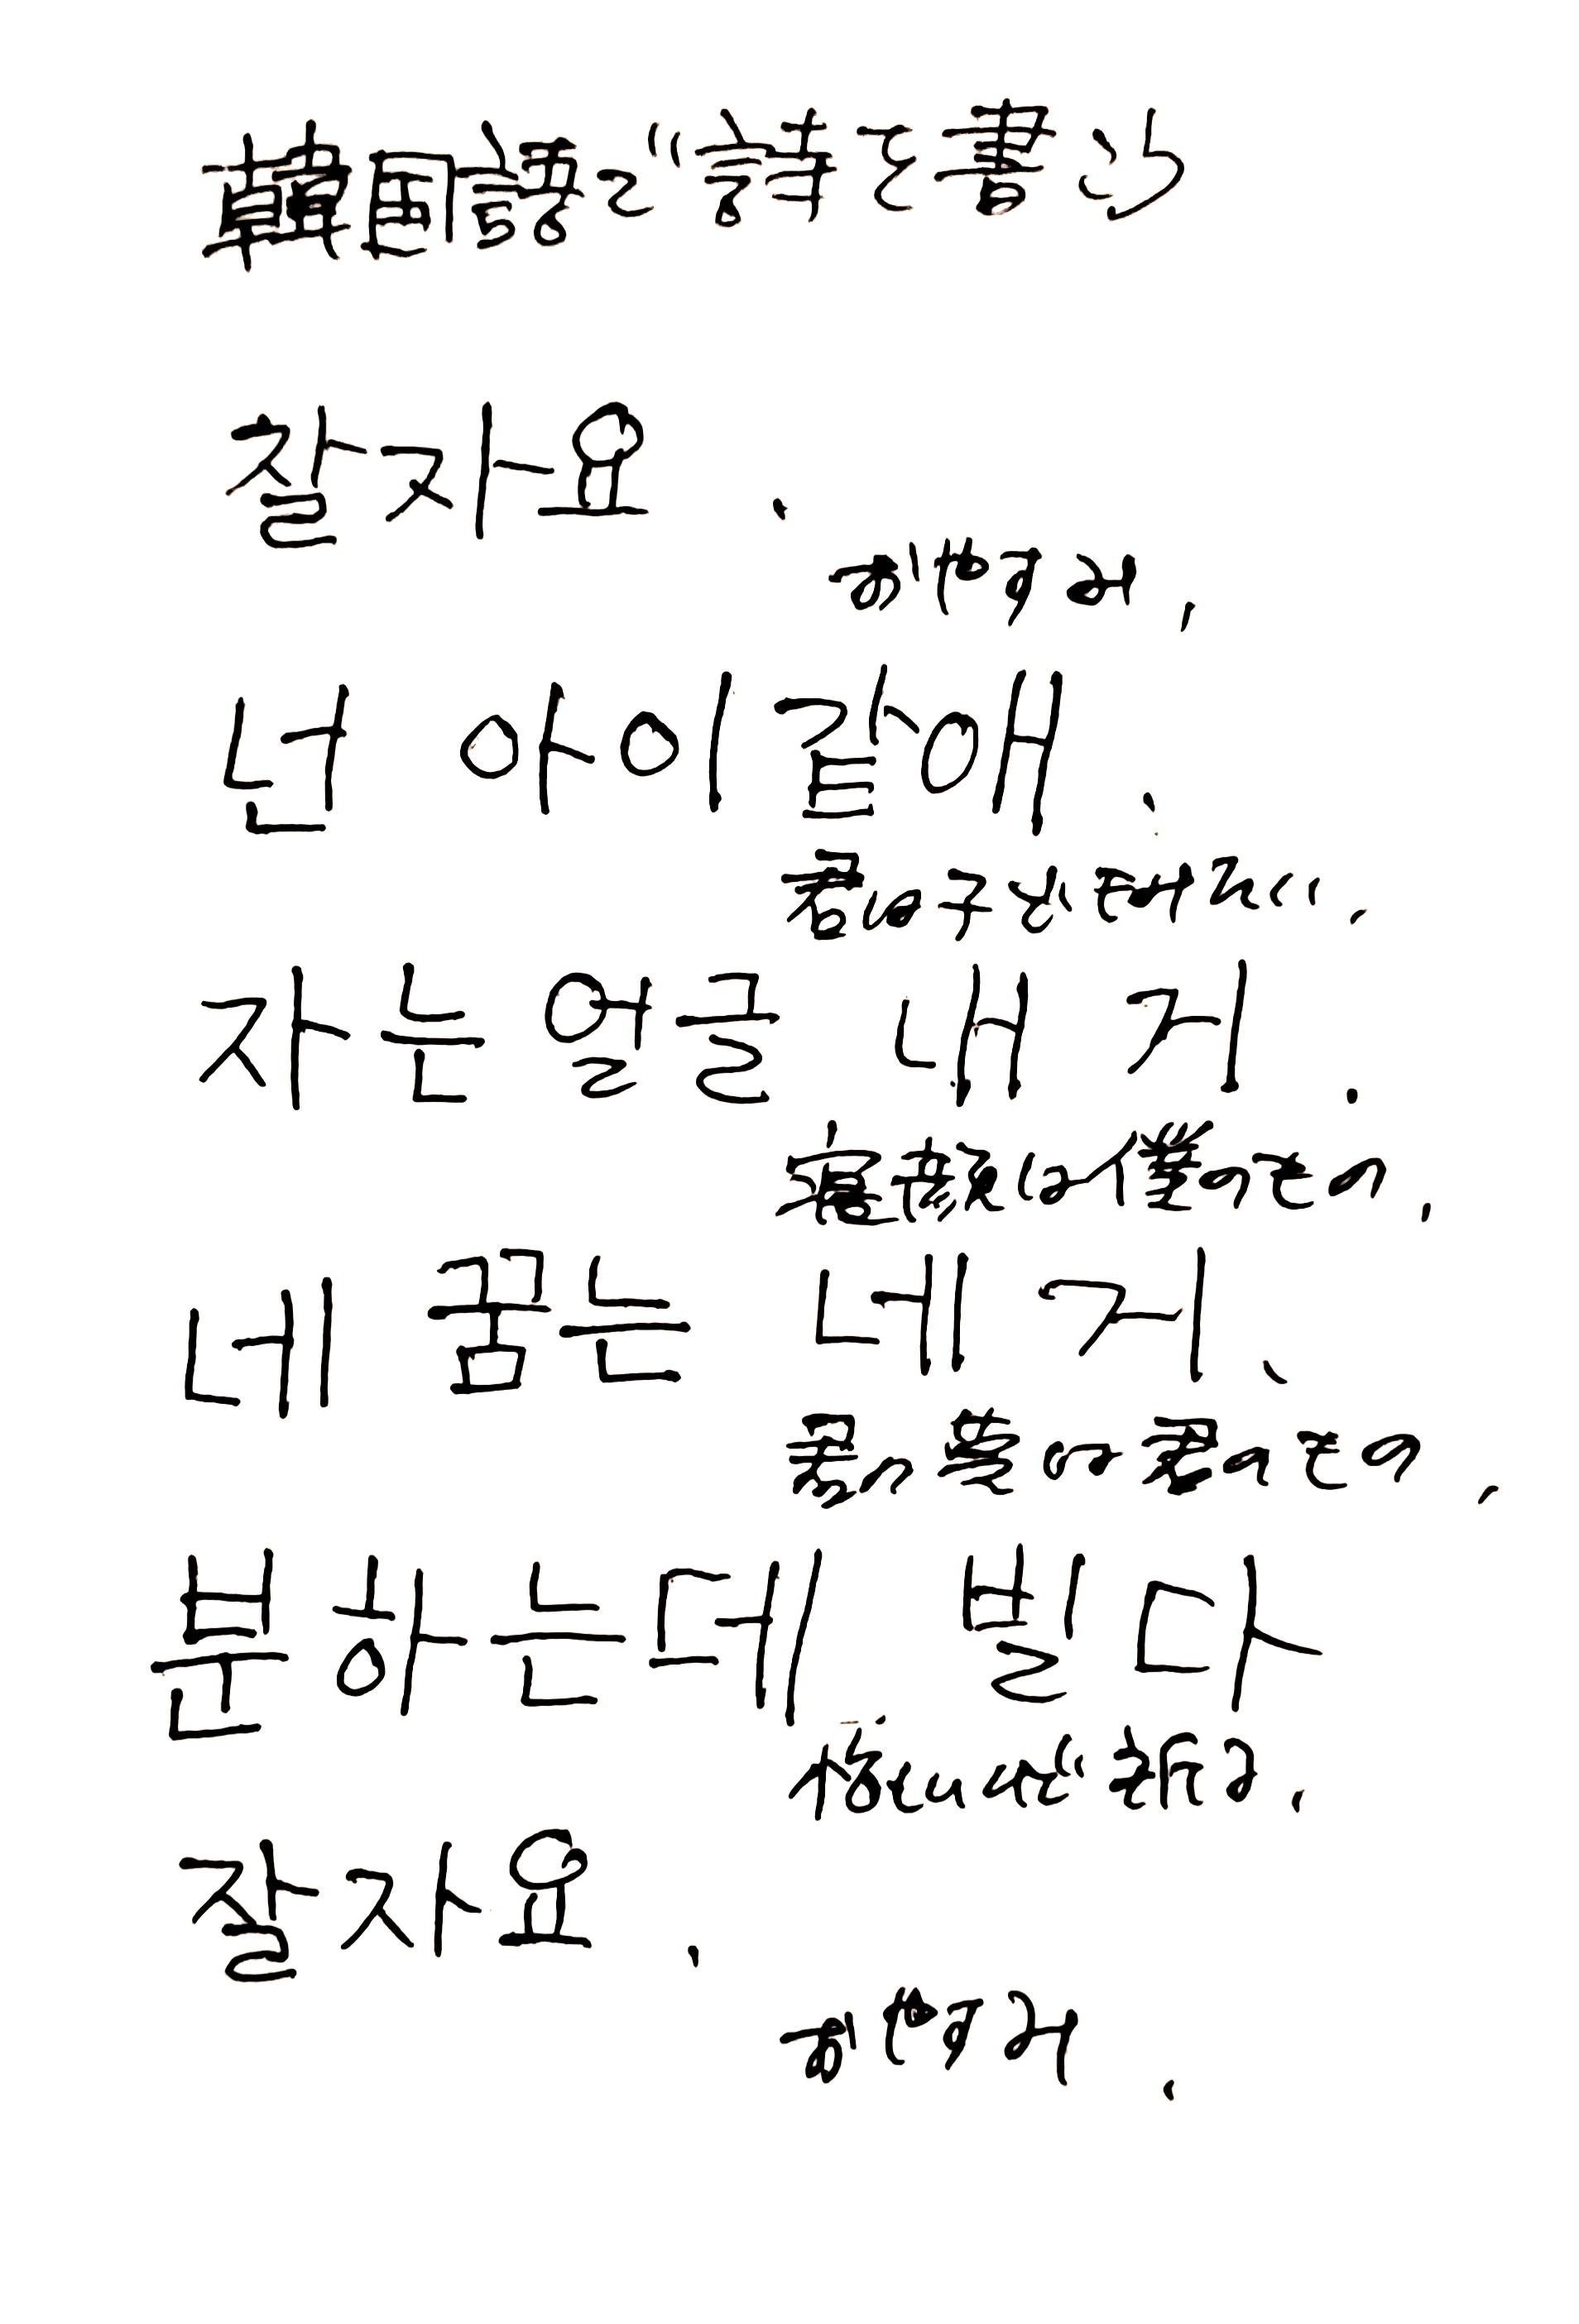 韓国語で詩を書こう
잘자요.
おやすみ.
넌 아이같애.
君は子
자는얼글 내 거.
寝顔は僕のもの.
네 꿈는 네 거.
君の夢は君のもの.
분하는데 빌다.
悔しいけど祈る.
잘자요.
おやすみ.